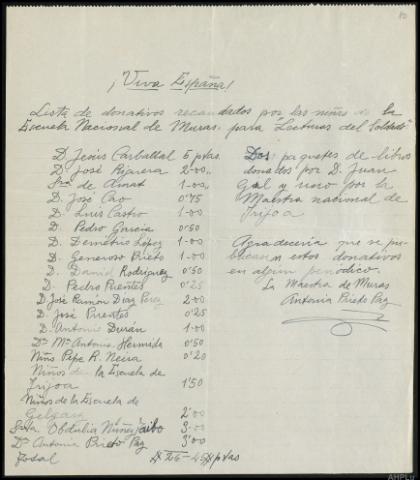 ¡Viva España!
Lista de donativos recaudados por las niñas de la
Escuela Nacional de Muras para "Lecturas del Soldado"
D. Jesús Carballal 5 ptas
D. José Piquera 2-00 "
Sra de Amat 1-00 "
D. José Cao 0'75
D. Luis Castro 1-00
D. Pedro García 0'50
D. Demetrio López 1-00
D. Generoso Prieto 1-00
D. Daniel Rodríguez 0'50
D. Pedro Puentes 0'25
D. José Ramón Díaz Pérez 2-00
D. José Puentes 0'25
D. Antonio Durán 1-00
Dª Mª Antonia Hermida 0'50
Niño Pepe R. Neira 0'20
Niños de la Escuela de
Irijoa 1'50
Niños de la Escuela de
2'00
Srta Obdulia Núñez 3-00
Dª Antonia Prieto Paz 3'00
Total ptas
Dos paquetes de libros
donados por D. Juan
Gal y uno por la
Maestra nacional de
Irijoa
Agradecería que se pu-
blicaran estos donativos
en algún periódico.
La Maestra de Muras
Antonia Prieto Paz
AHPLU